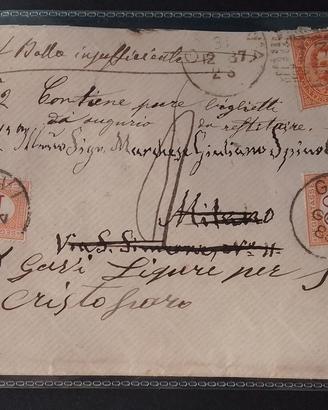 Bollo insufficiente
31
12 87
2 Contiene pure biglietti
da augurio da restituire.
Sigr. Marchese Giuliano Spinol
Milano
Via S. Simone, N. 11
Gavi Ligure per S
Cristoforo